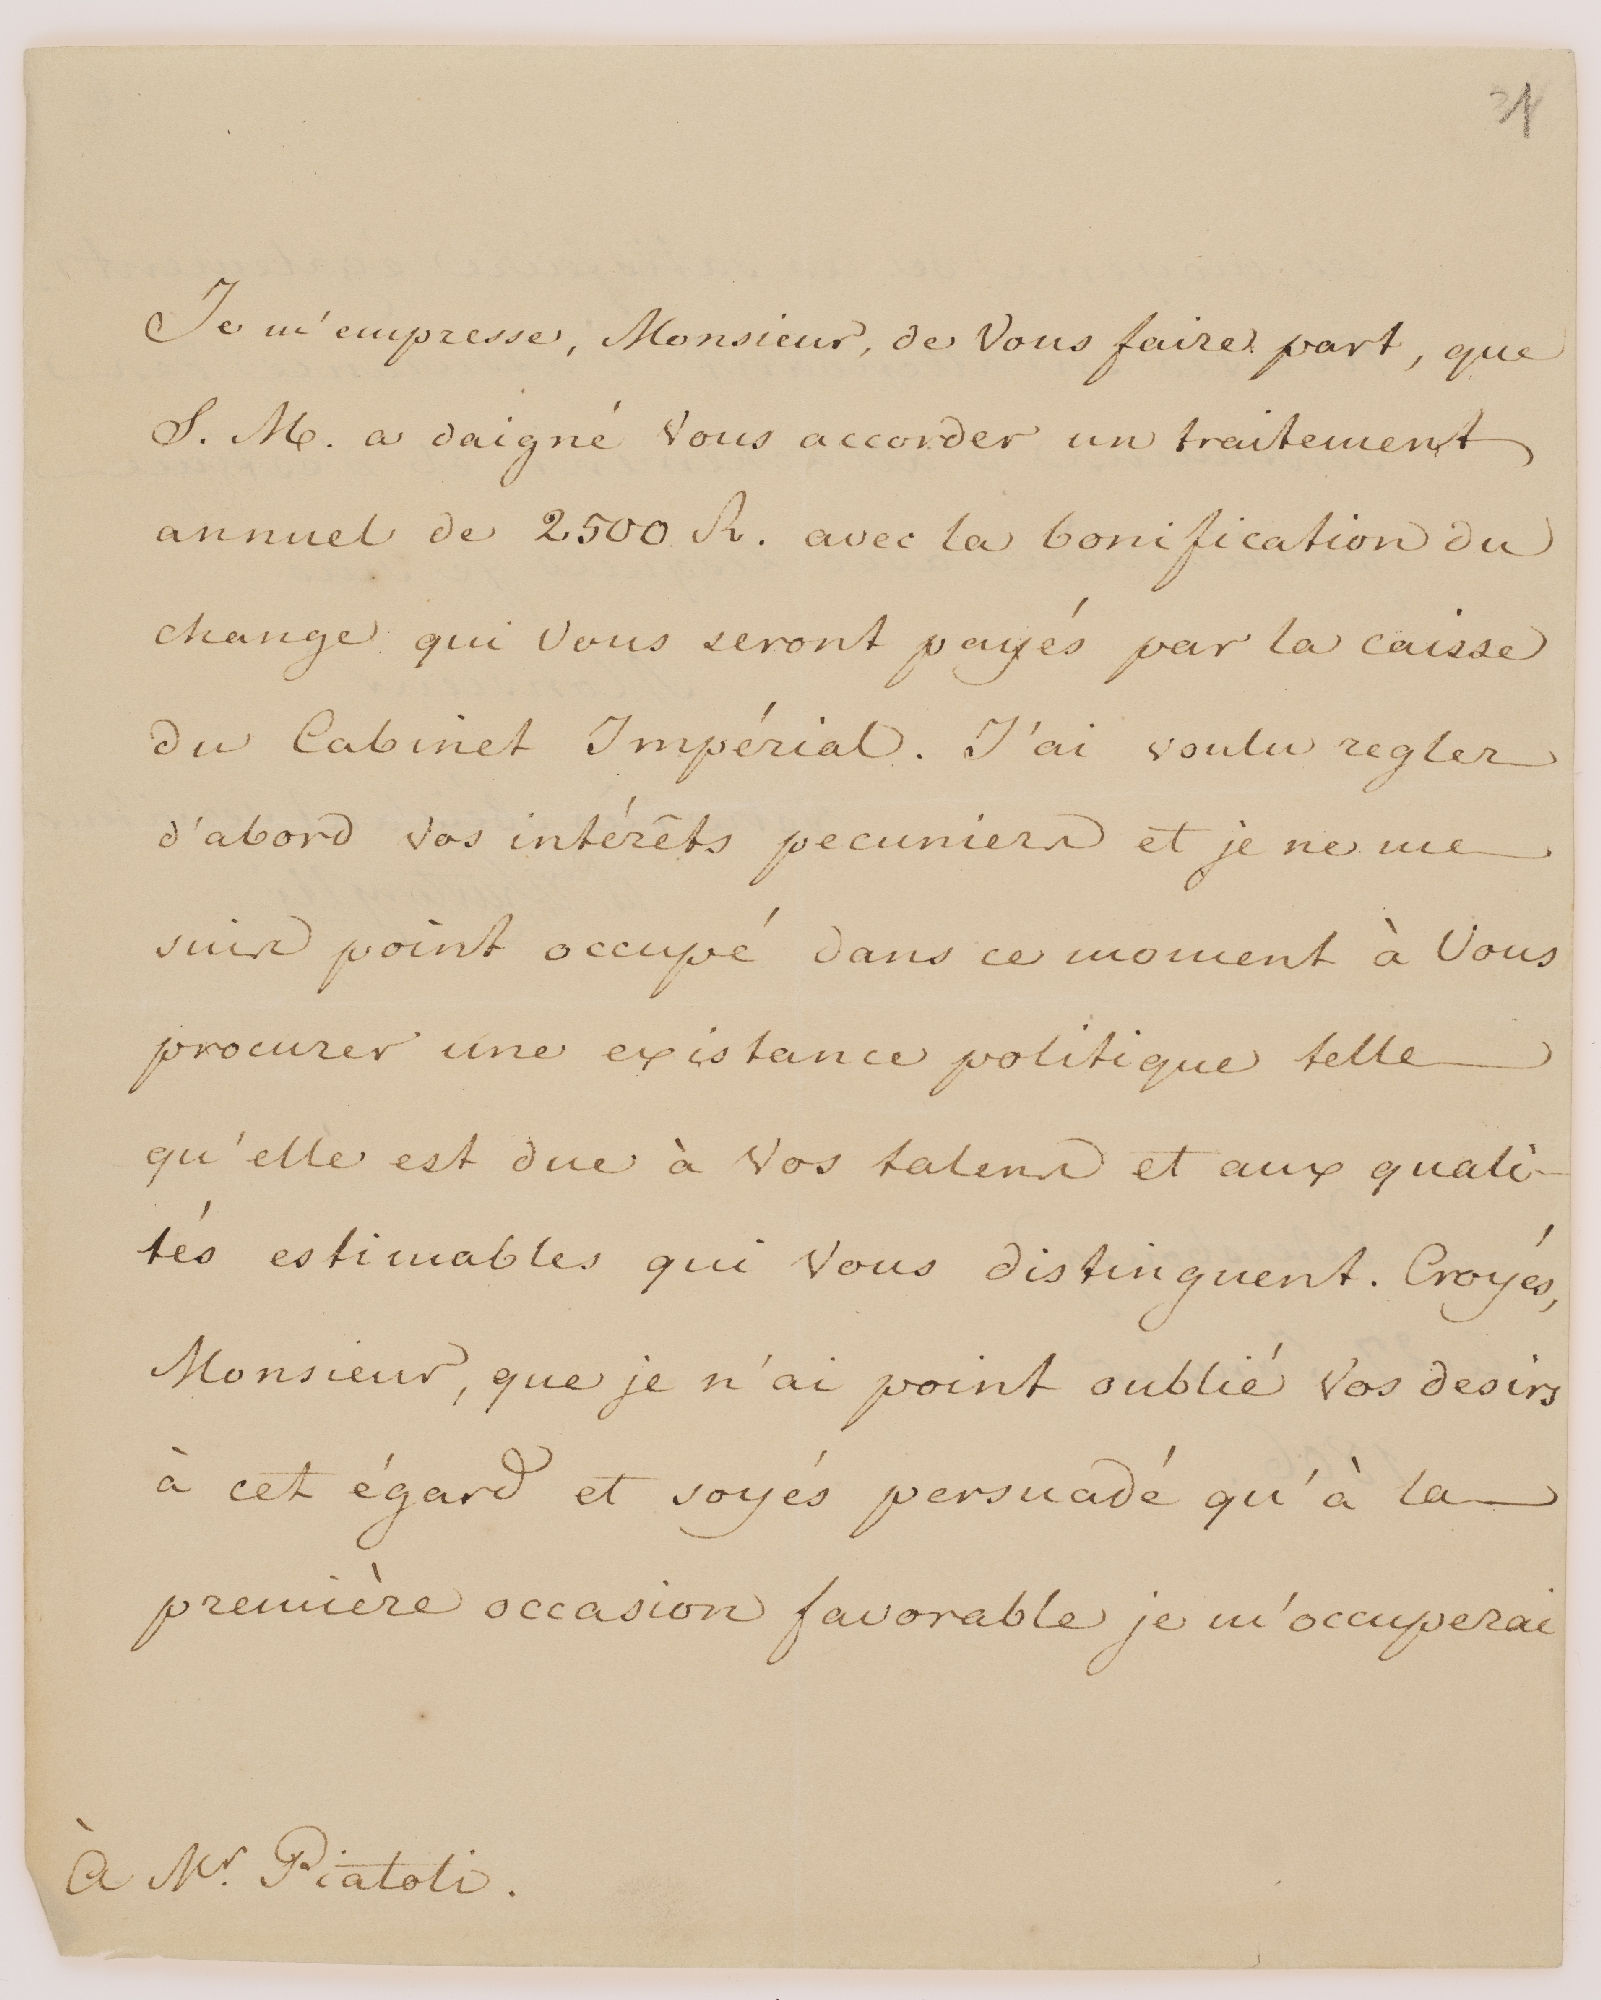 Je m'empresse, Monsieur, de Vous faire part, que
S. M. a daigné Vous accorder un traitement
annuel de 2500 R. avec la bonification du
change qui Vous seront payés par la caisse
du Cabinet Impérial. J'ai voulu regler
d'abord Vos intérêts pecuniers et je ne me
suis point occupé dans ce moment à Vous
procurer une existance politique telle
qu'elle est due à Vos talens et aux quali-
tés estimables qui Vous distinguent. Croyés,
Monsieur, que je n'ai point oublié Vos desirs
à cet égard et soyés persuadé qu'à la
première occasion favorable je m'occuperai
À Mr. Piatoli.